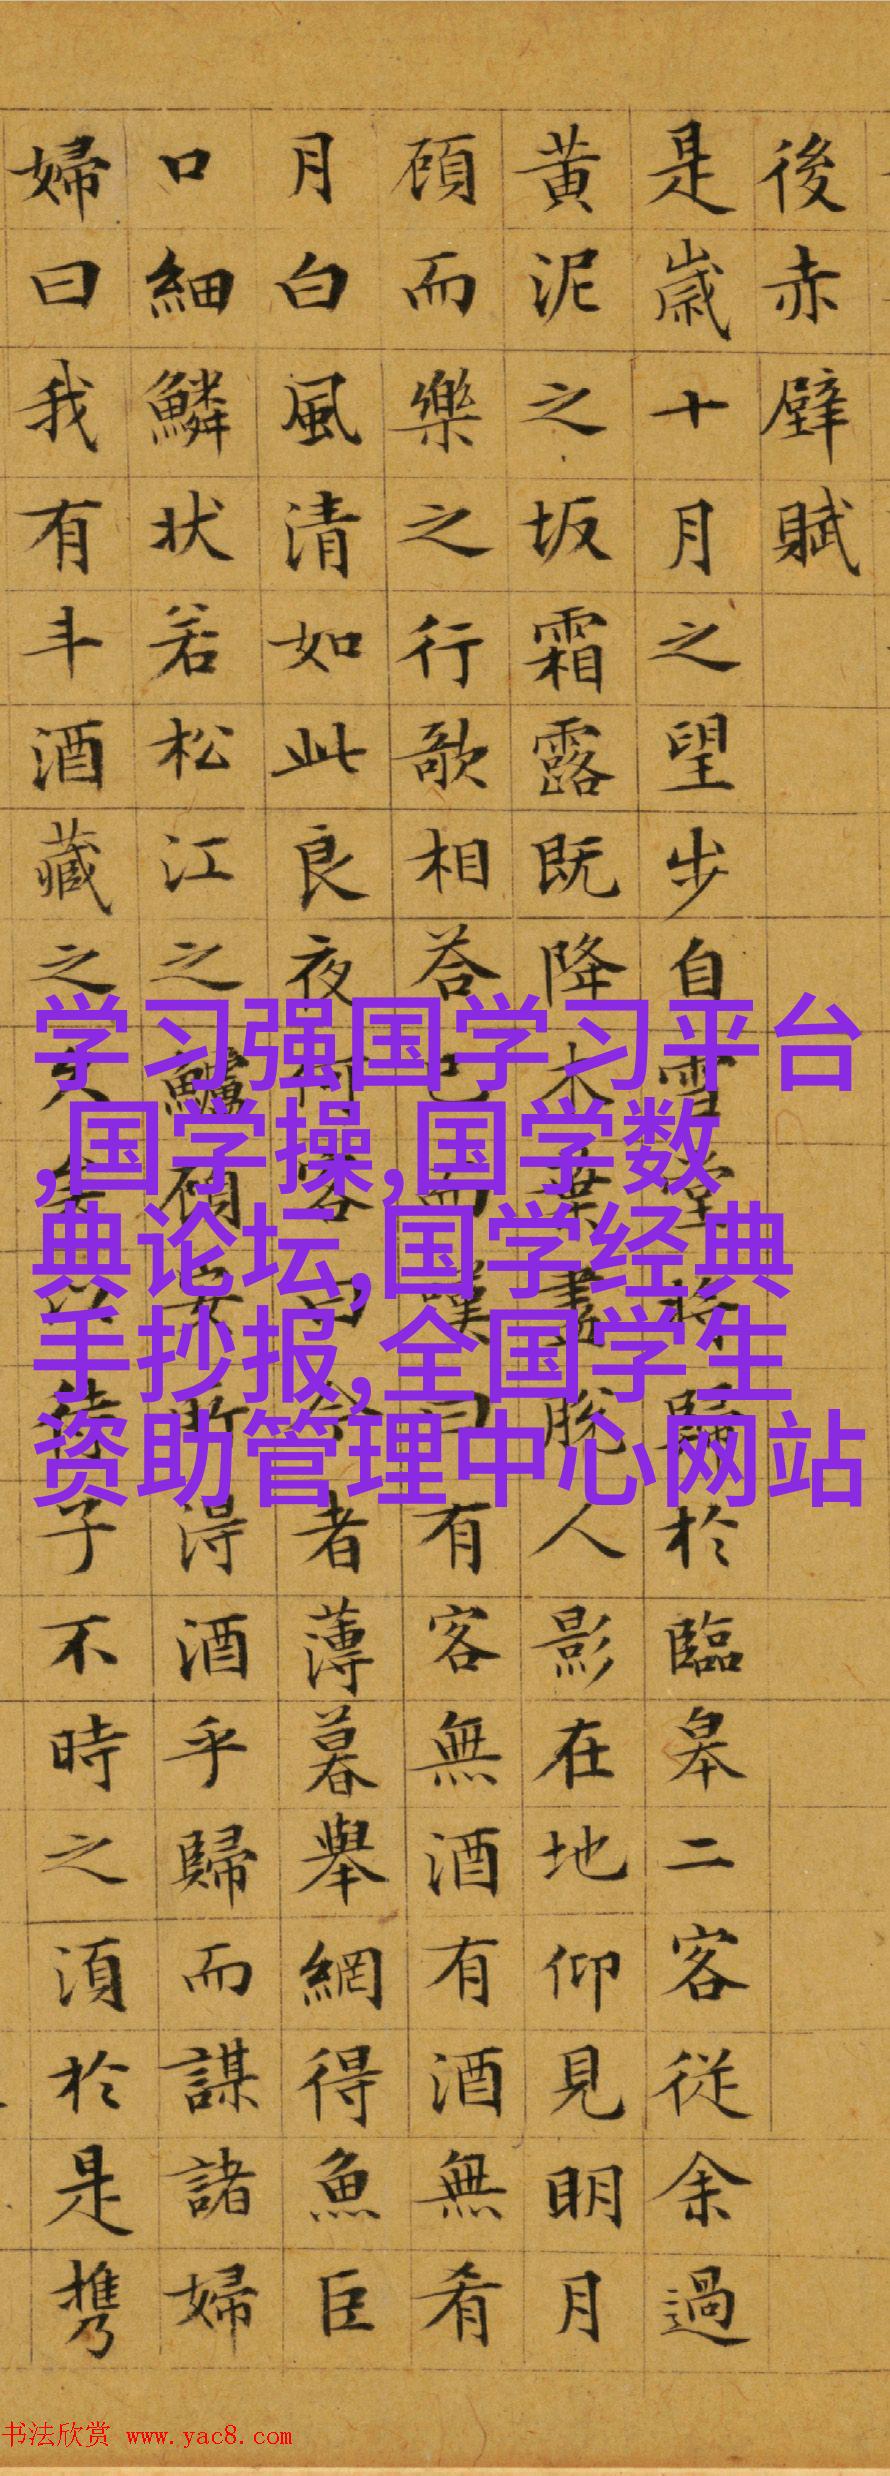 後赤壁賦
是歲十月之望步自雪堂將歸於臨皋二客從余過
黄泥之坂霜露既降木葉盡脫人影在地仰見明月
頋而樂之行歌相荅已而嘆曰有客無酒有酒無肴
月白風清如此良夜何客曰今者薄暮舉網得魚臣
口細鱗状若松江之鱸頋安所得酒乎歸而謀諸婦
婦曰我有斗酒藏之久矣以待子不時之湏於是携
学习强国学习平台
,国学操,国学数
典论坛,国学经典
手抄报,全国学生
资助管理中心网站
书法欣赏 www.yac8.com